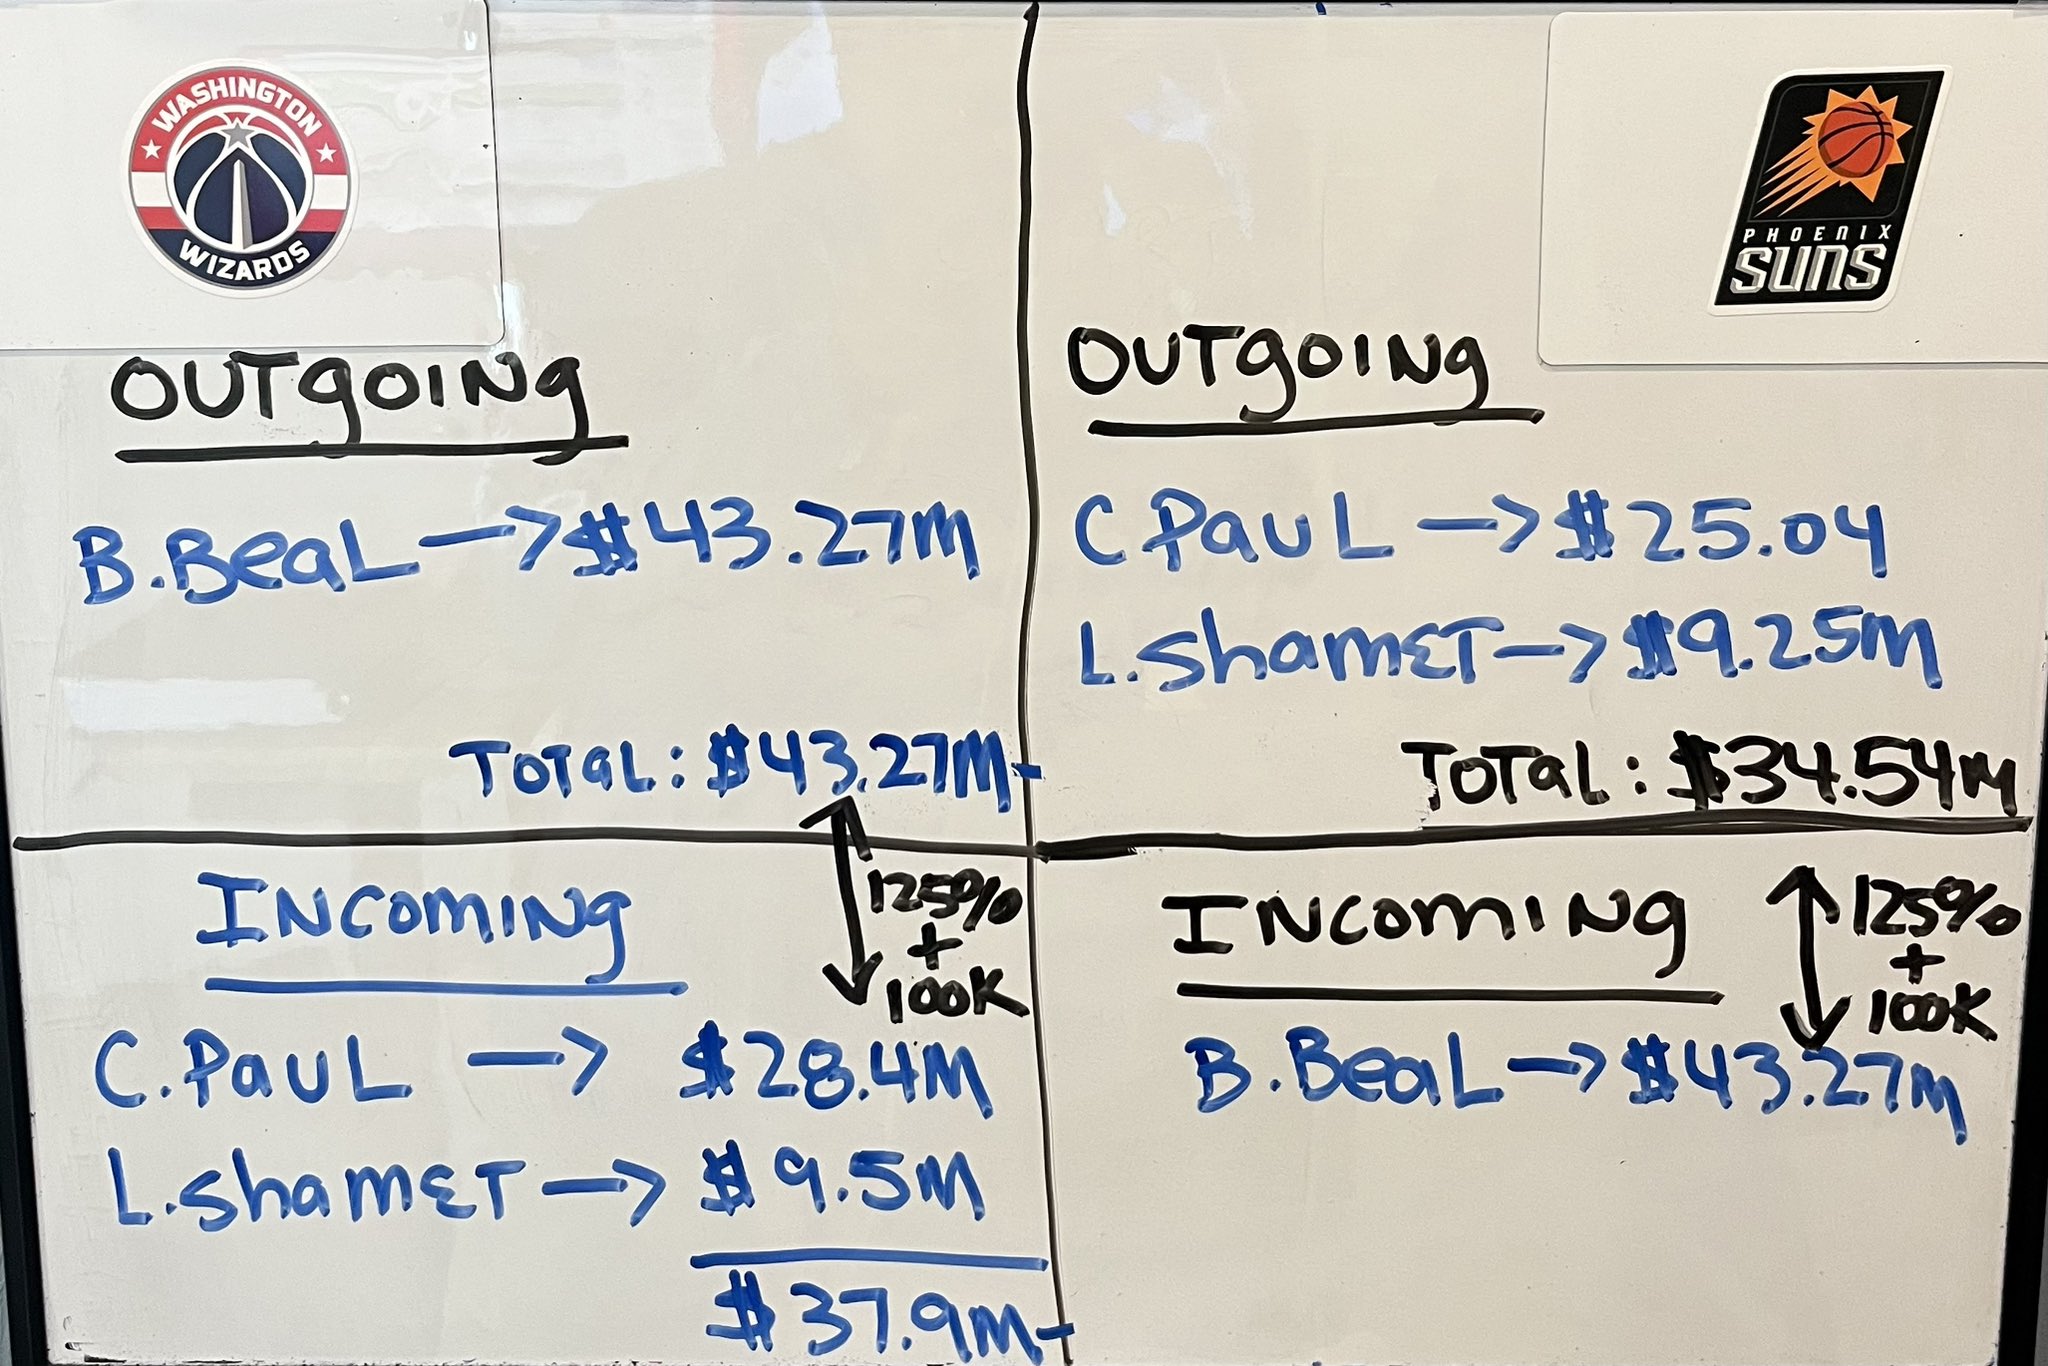 WASHINGTON
WIZARDS
OUTgOING
B.BeaL → $43.27M
TOTaL: $43.27M
PHOENIX
SUNS
OUTgOING
C PauL → $25.04
L.ShamET → $9.25M
TOTaL: $34.54M
INComING
125%
+
100K
C.PauL → $28.4M
L.ShamET → $9.5M
$37.9M
INComING
125%
+
100K
B.BeaL → $43.27M